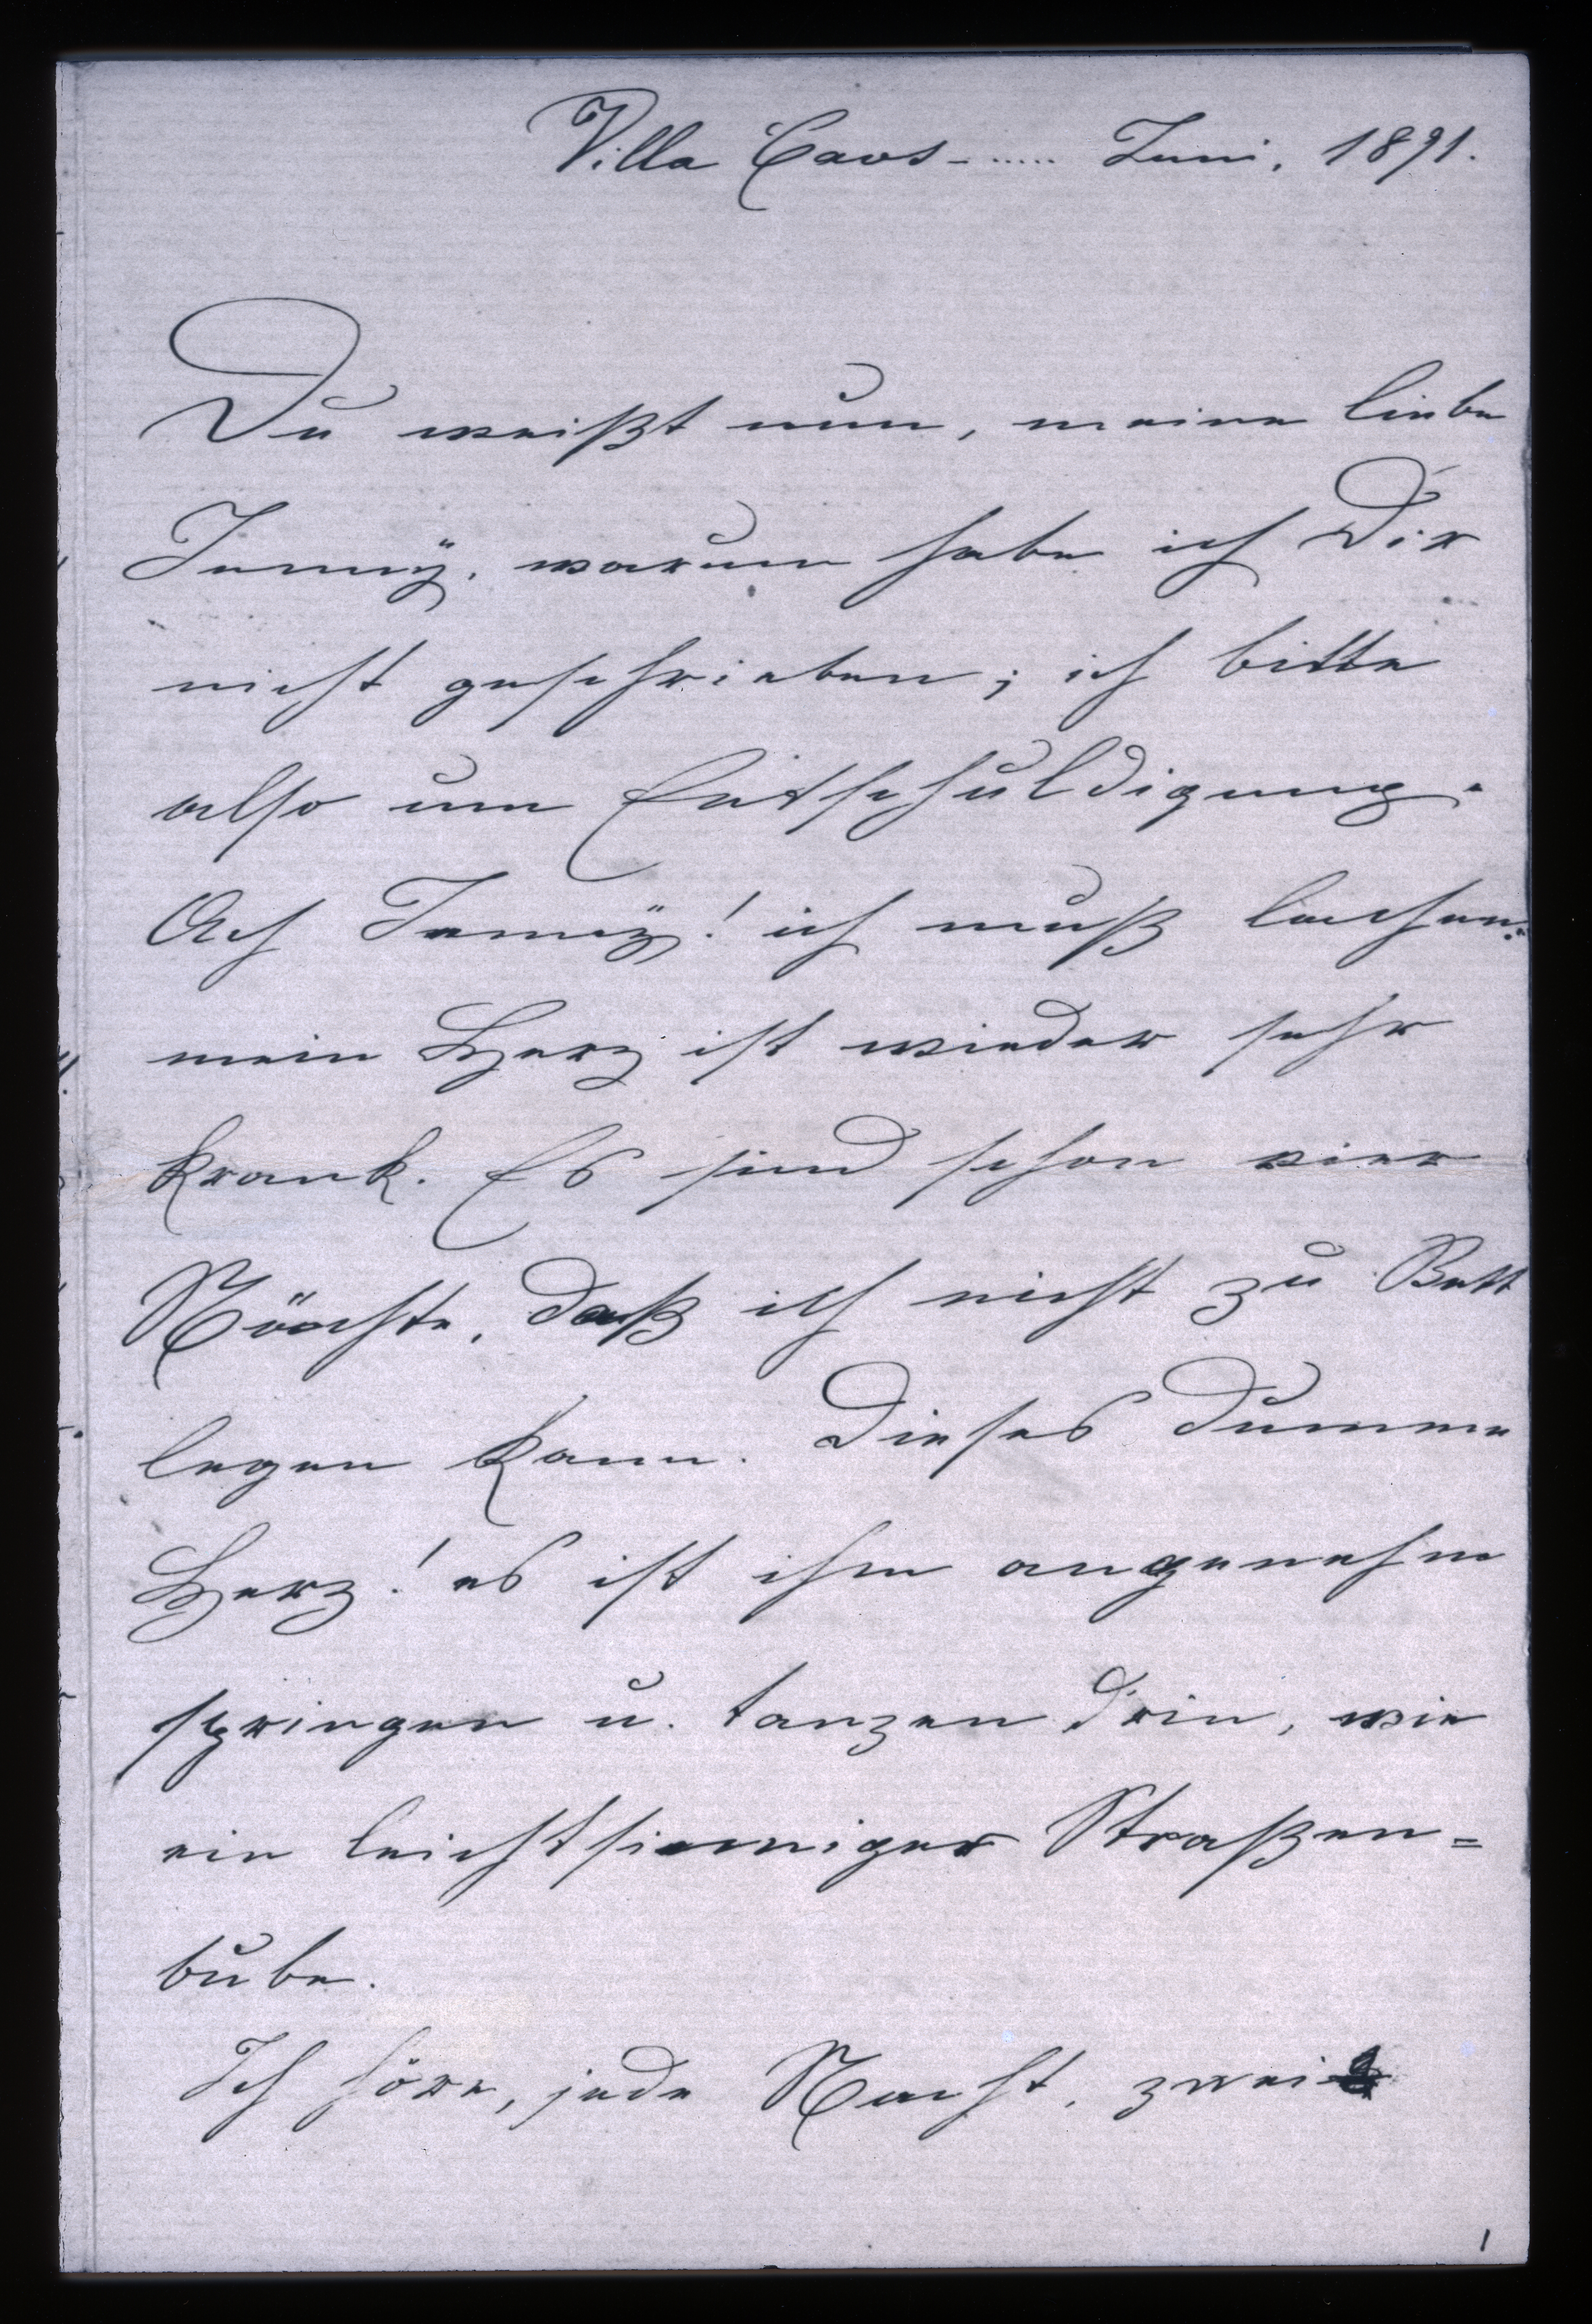 Villa Caos - ..... Juni, 1891.
Du weißt nun, meine liebe
Jenny, warum habe ich Dir
nicht geschrieben; ich bitte
also um Entschuldigung.
Ach Jenny! ich muß lachen:
mein Herz ist wieder sehr
krank. Es sind schon vier
Nächte, daß ich nicht zu Bett
legen kann. Dieses dumme
Herz! es ist ihm angenehm
springen u. tanzen drin, wie
ein leichtsinniger Straßen=
bube.
Ich höre, jede Nacht, zwei
1